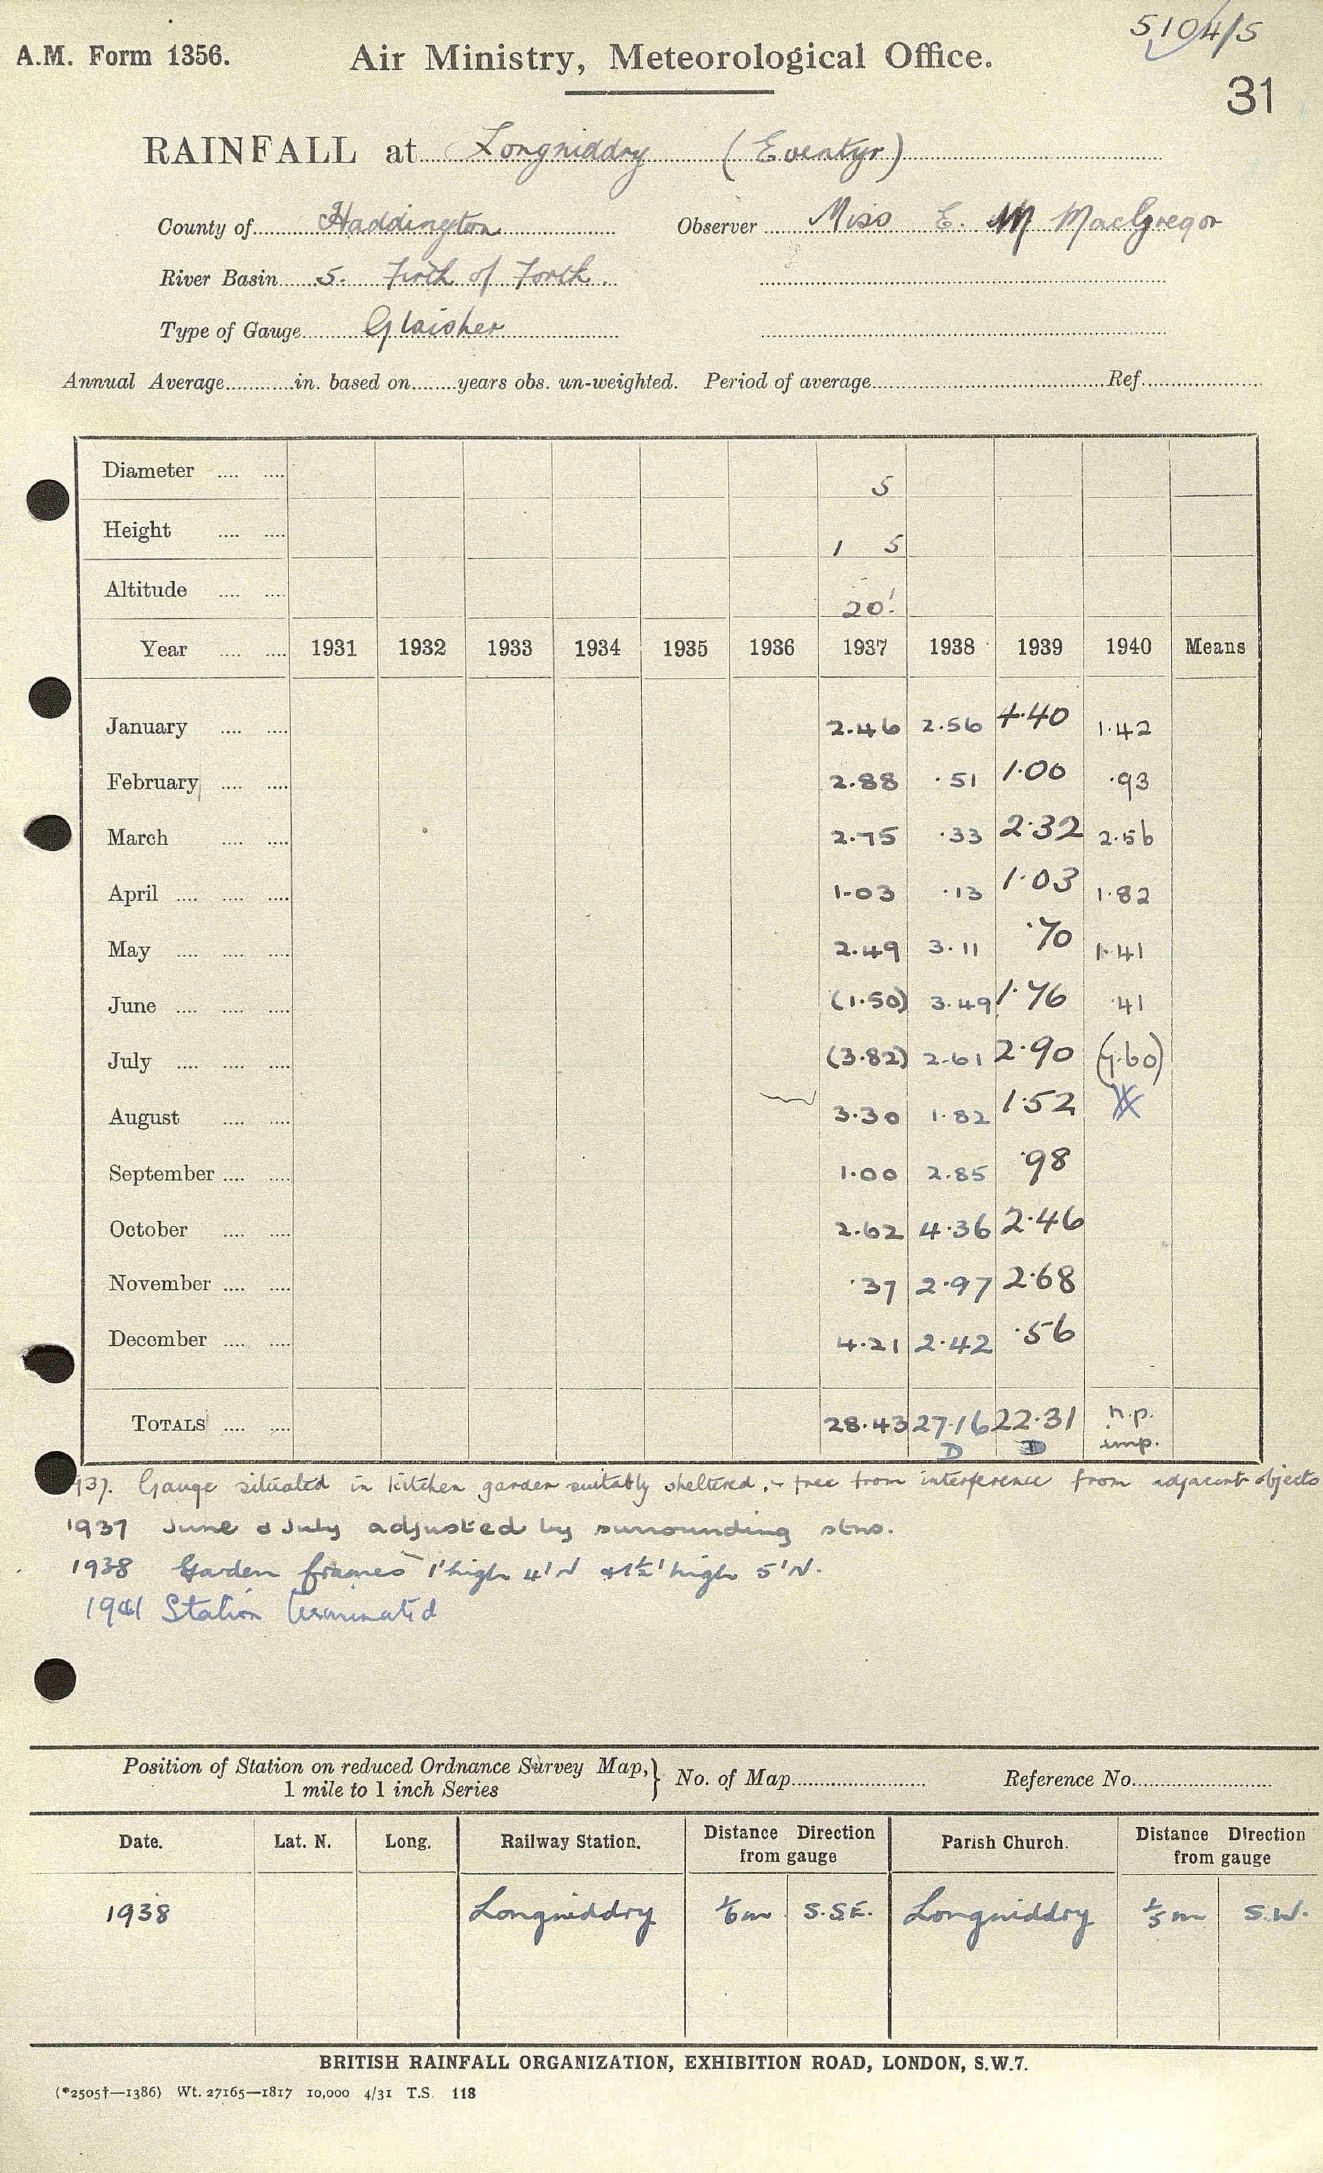 5104/5
A.M. Form 1356. Air Ministry, Meteorological Office.
31
RAINFALL at Longniddry (Eventyr)
County of Haddington Observer Miss E. M MacGregor
River Basin 5. Firth of Forth.
Type of Gauge Glaisher
Annual Average in. based on years obs. un-weighted. Period of average Ref.
Diameter 5
Height 1 5
Altitude 20'
Year 1931 1932 1933 1934 1935 1936 1937 1938 1939 1940 Means
January 2.46 2.56 4.40 1.42
February 2.88 .51 1.00 .93
March 2.75 .33 2.32 2.56
April 1.03 .13 1.03 1.82
May 2.49 3.11 .70 1.41
June (1.50) 3.49 1.76 .41
July (3.82) 2.61 2.90 (7.60)
August 3.30 1.82 1.52
September 1.00 2.85 .98
October 2.62 4.36 2.46
November .37 2.97 2.68
December 4.21 2.42 .56
TOTALS 28.43 27.16 22.31 n.p.
D D imp.
937. Gauge situated in kitchen garden suitably sheltered, & free from interference from adjacent objects
1937 June & July adjusted by surrounding stns.
1938 Garden frames 1' high 4' N & 1½' high 5' N.
1941 Station terminated
Position of Station on reduced Ordnance Survey Map, } No. of Map Reference No.
1 mile to 1 inch Series
Date. Lat. N. Long. Railway Station. Distance Direction from gauge Parish Church. Distance Direction from gauge
1938 Longniddry 1/6 m S.S.E. Longniddry 1/5 m S.W.
BRITISH RAINFALL ORGANIZATION, EXHIBITION ROAD, LONDON, S.W.7.
(*2505†—1386) Wt. 27165—1817 10,000 4/31 T.S. 118